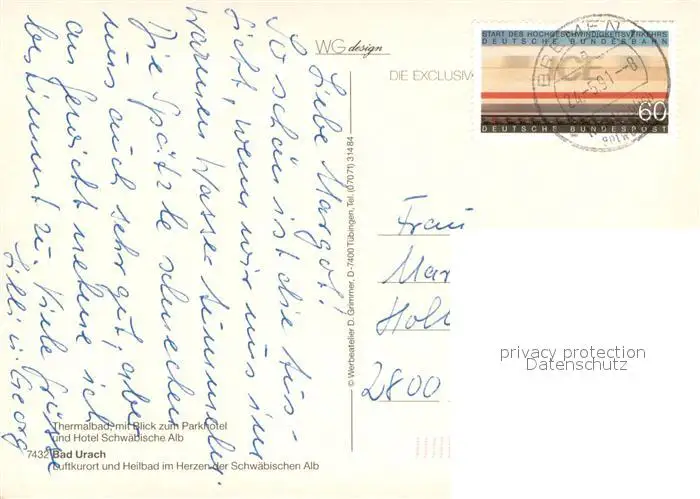 WG design
DIE EXCLUSIV
START DES HOCHGESCHWINDIGKEITSVERKEHRS
DEUTSCHE BUNDESBAHN
60
DEUTSCHE BUNDESPOST
24.-5.91.-8
Liebe Margot!
So schön ist die Aus-
sicht, wenn wir uns im
warmen Wasser tummeln.
Die Spätzle schmecken
uns auch sehr gut, aber
an Gewicht nehme ich
bestimmt zu. Viele Grüsse
Lilli u. Georg
© Werbeatelier D. Grimmer, D-7400 Tübingen, Tel. (07071) 31484
Frau
Mar
Hol
2800
privacy protection
Datenschutz
Thermalbad, mit Blick zum Parkhotel
und Hotel Schwäbische Alb
7432 Bad Urach
Luftkurort und Heilbad im Herzen der Schwäbischen Alb